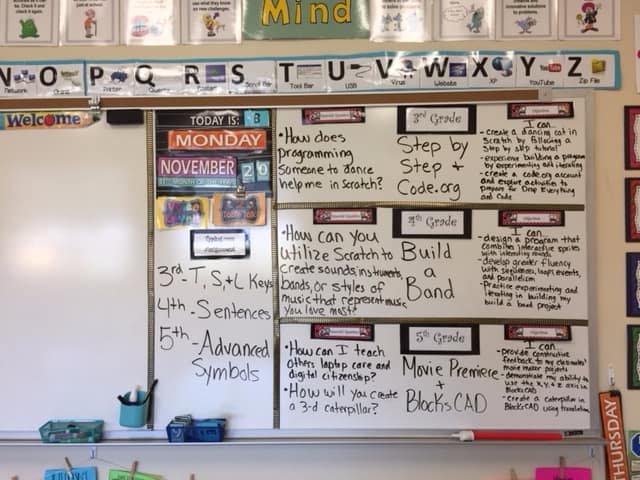 Mind
N O P Q R S T U V W X Y Z
Network
Scroll Bar
Tool Bar
USB
Virus
Website
XP
YouTube
Zip File
Welcome
TODAY IS: B
MONDAY
NOVEMBER 20
Table Talk
3rd - T, S, + L Keys
4th - Sentences
5th - Advanced
Symbols
• How does
programming
someone to dance
help me in Scratch?
3rd Grade
Step by
Step +
Code.org
I can...
- create a dancing cat in
Scratch by following a
step by step tutorial
- experience building a program
by experimenting and iterating
- create a code.org account
and explore activities to
prepare for Drop Everything
and Code
• How can you
utilize Scratch to
create sounds, instruments,
bands, or styles of
music that represent music
you love most?
4th Grade
Build
a
Band
I can...
- design a program that
combines interactive sprites
with interesting sounds
- develop greater fluency
with sequences, loops, events,
and parallelism
- Practice experimenting and
iterating in building my
build a band project
• How can I teach
others laptop care and
digital citizenship?
• How will you create
a 3-d caterpillar?
5th Grade
Movie Premiere
+
BlocksCAD
I can...
- provide constructive
feedback to my classmates'
movie maker projects
- demonstrate my ability to
use the X, Y, + Z axis in
BlocksCAD
- create a caterpillar in
BlocksCAD using translation
THURSDAY